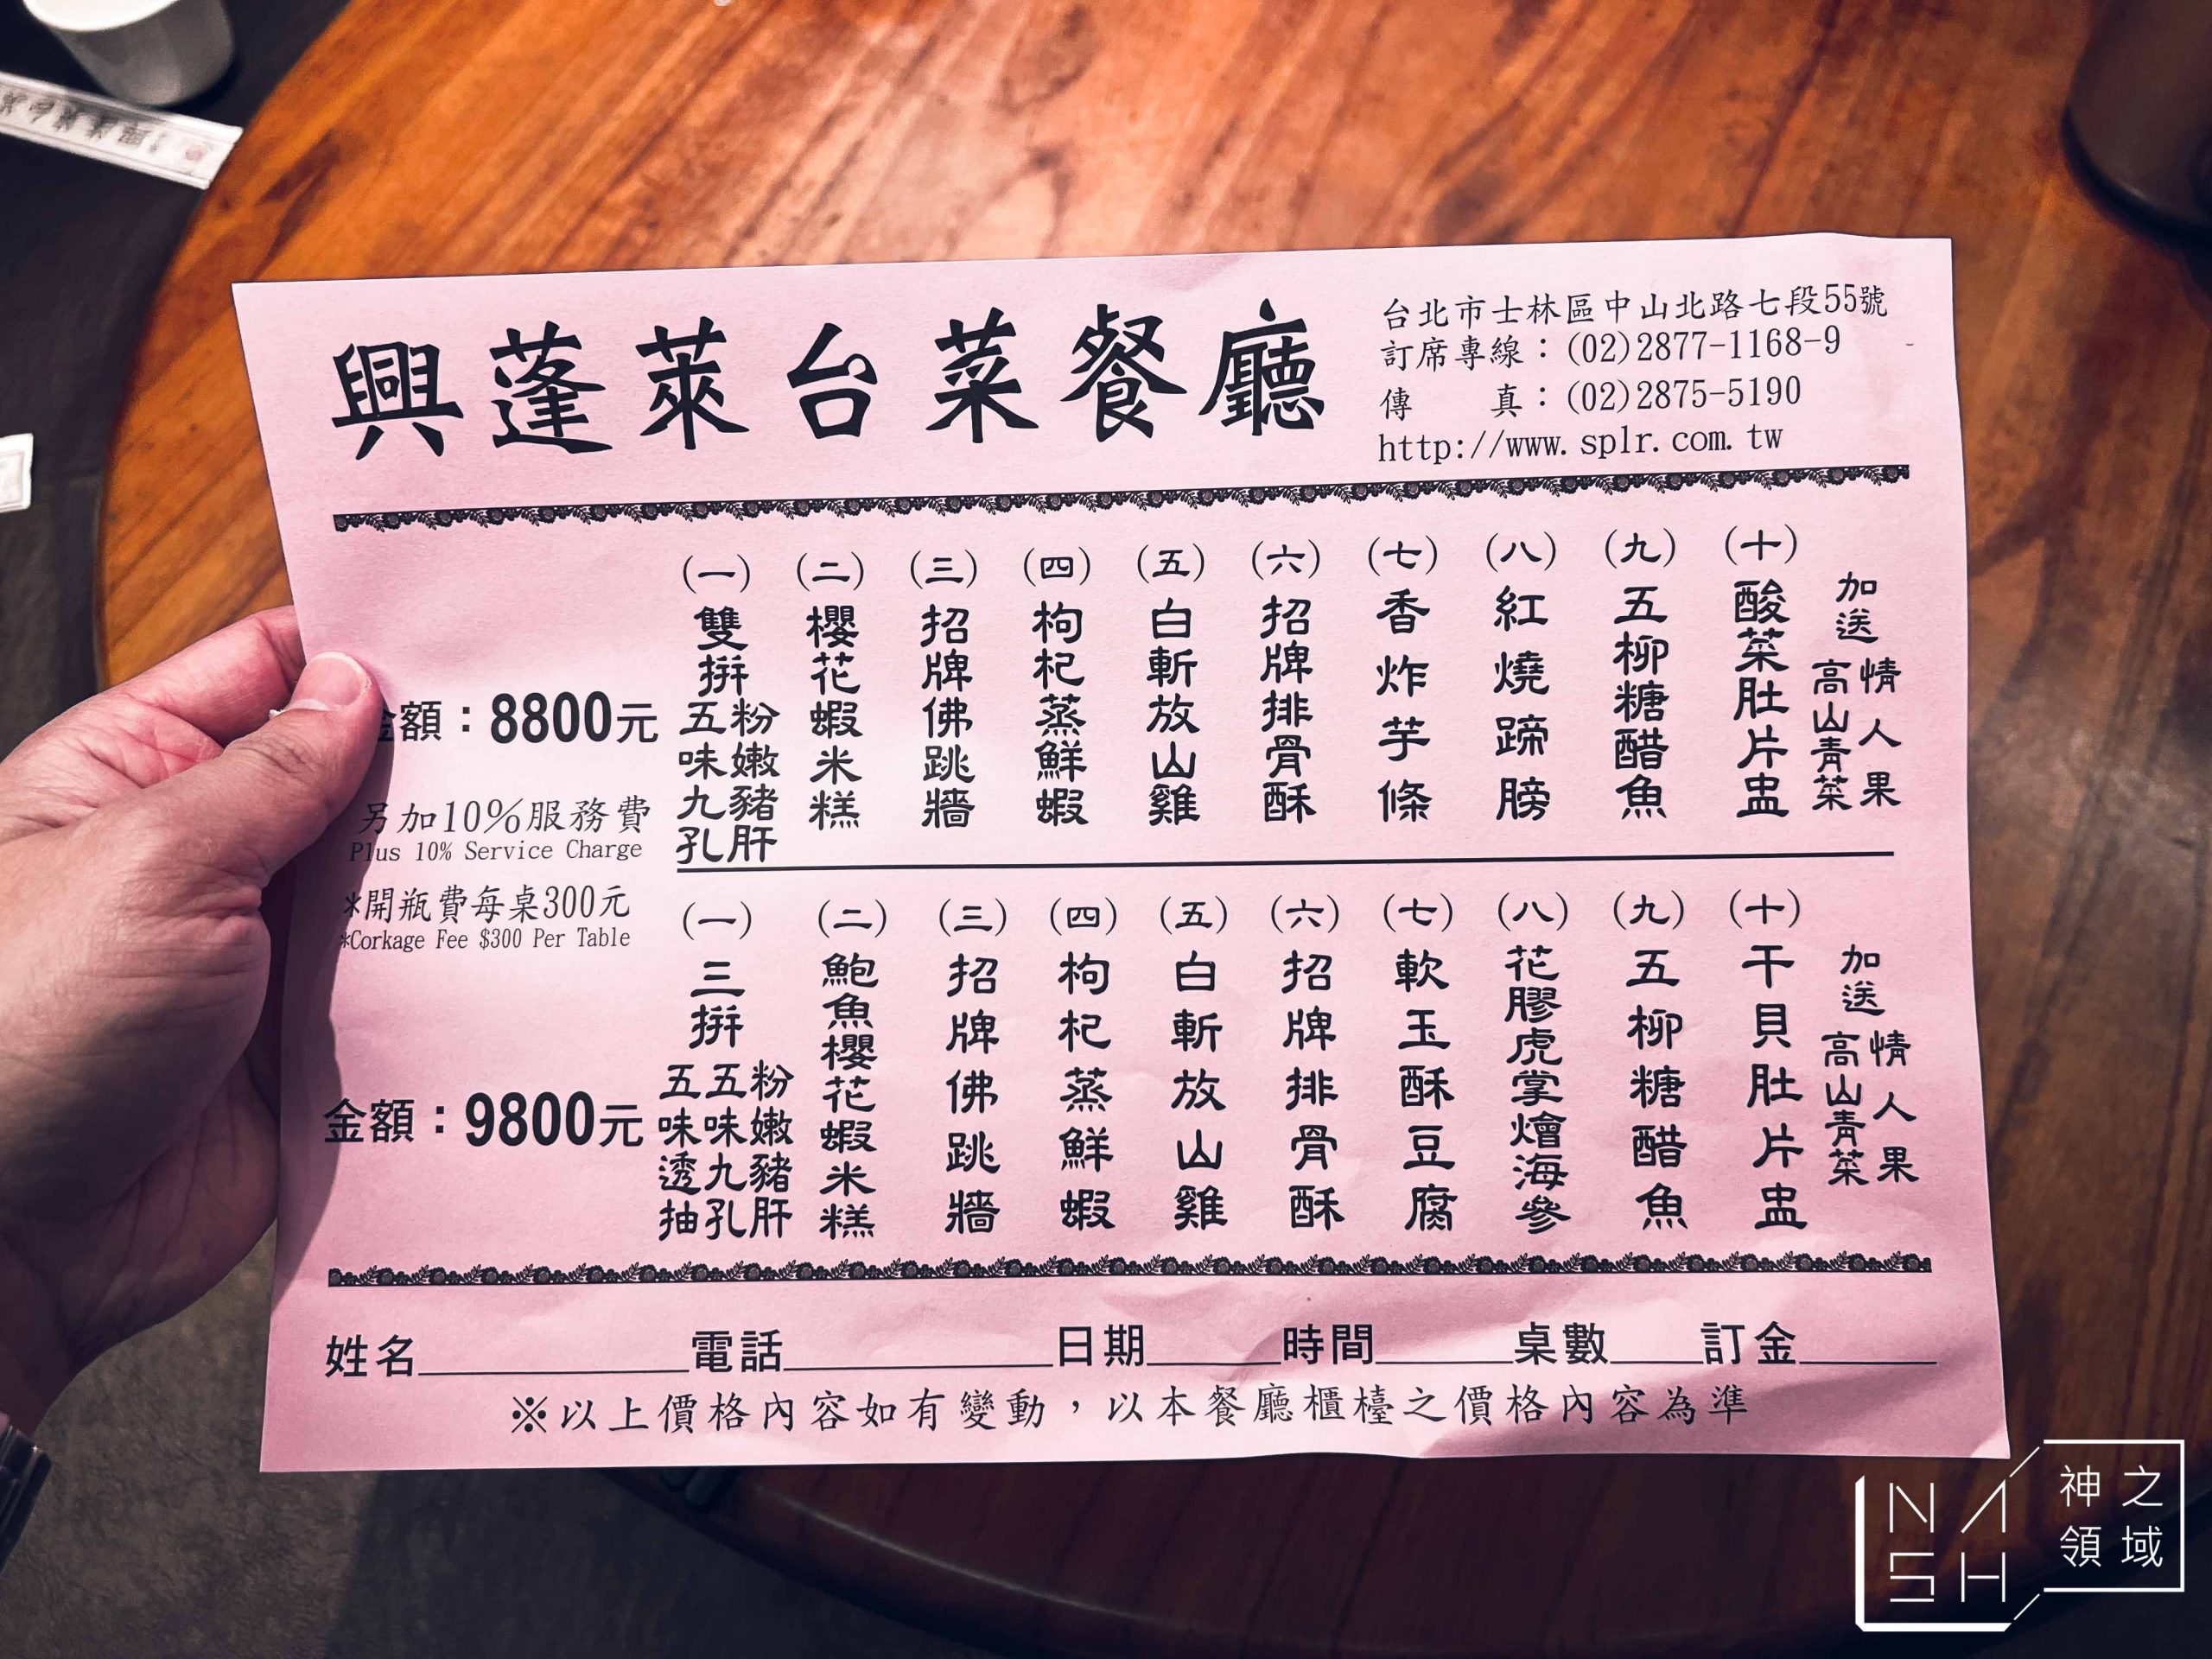 興蓬萊台菜餐廳
台北市士林區中山北路七段55號
訂席專線：(02)2877-1168-9
傳　　真：(02)2875-5190
http://www.splr.com.tw
金額：8800元
另加10%服務費
Plus 10% Service Charge
*開瓶費每桌300元
*Corkage Fee $300 Per Table
(一)雙拼 粉嫩豬肝 五味九孔
(二)櫻花蝦米糕
(三)招牌佛跳牆
(四)枸杞蒸鮮蝦
(五)白斬放山雞
(六)招牌排骨酥
(七)香炸芋條
(八)紅燒蹄膀
(九)五柳糖醋魚
(十)酸菜肚片盅
加送 情人果 高山青菜
金額：9800元
(一)三拼 粉嫩豬肝 五味九孔 五味透抽
(二)鮑魚櫻花蝦米糕
(三)招牌佛跳牆
(四)枸杞蒸鮮蝦
(五)白斬放山雞
(六)招牌排骨酥
(七)軟玉酥豆腐
(八)花膠虎掌燴海參
(九)五柳糖醋魚
(十)干貝肚片盅
加送 情人果 高山青菜
姓名 電話 日期 時間 桌數 訂金
※以上價格內容如有變動，以本餐廳櫃檯之價格內容為準
NASH
神之
領域